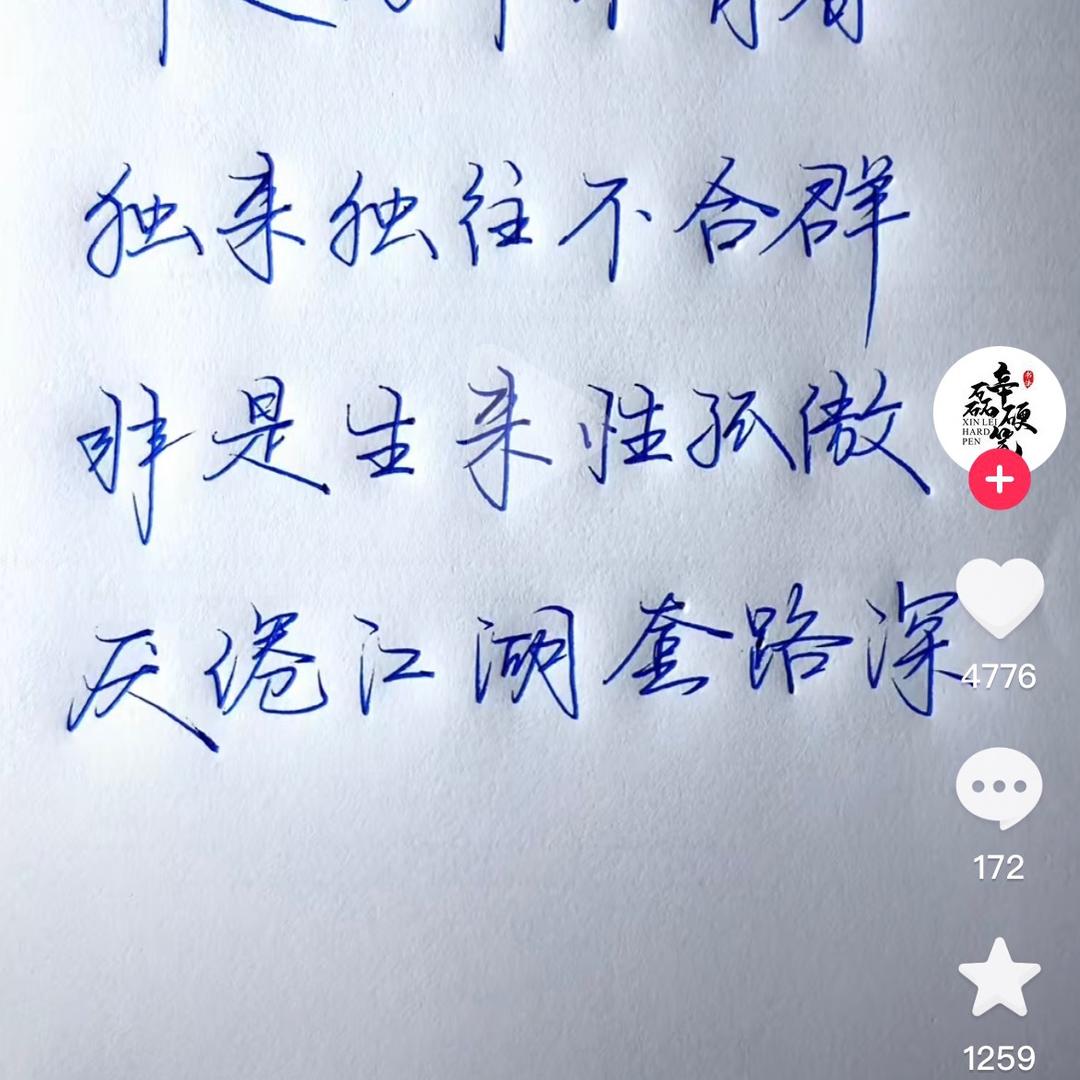 独来独往不合群
非是生来性孤傲
厌倦江湖套路深
辛磊硬笔
XIN LEI
HARD
PEN
4776
172
1259